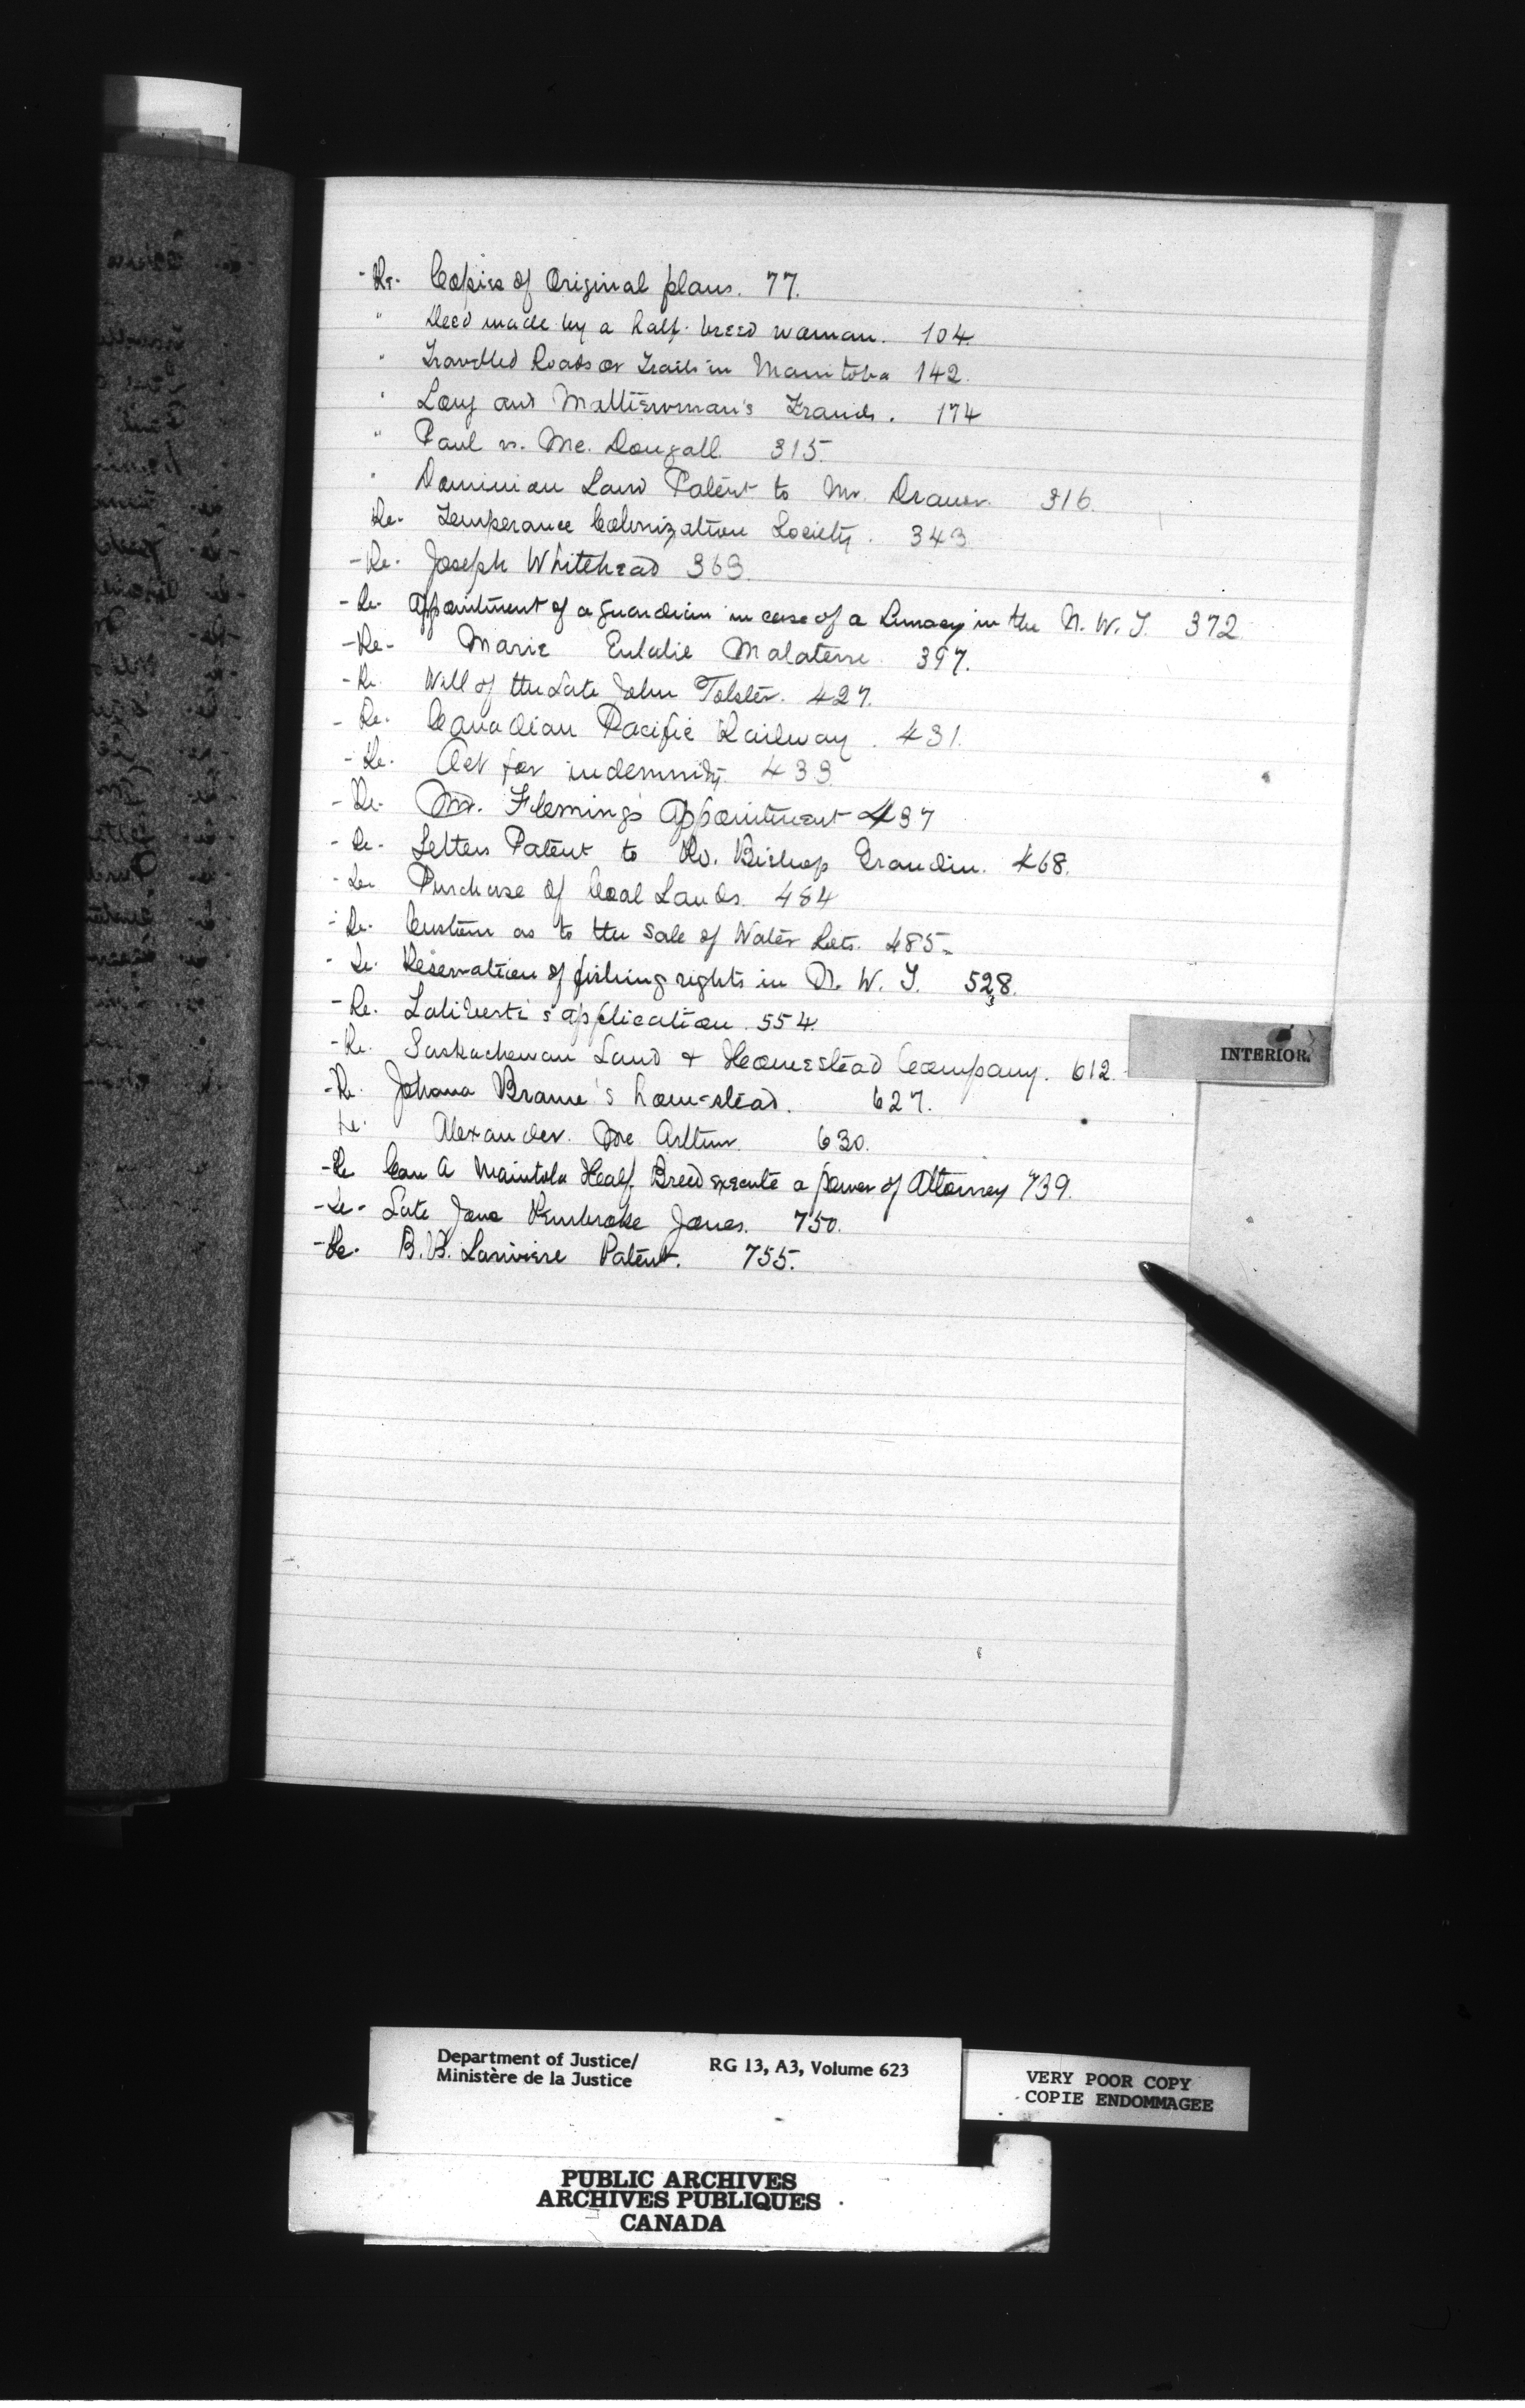 -Re- Copies of Original plans. 77.
" Deed made by a half-breed woman. 104.
" Travelled Roads or Trails in Manitoba 142.
" Long and Matthewman's Frauds. 174
" Paul vs. Mc. Dougall. 315.
" Dominion Land Patent to Mr. 316.
Re- Temperance Colonization Society. 343.
-Re- Joseph Whitehead 363.
-Re- Appointment of a guardian in case of a Lunacy in the N. W. T. 372
-Re- Marie Eulalie Malaterre. 397.
-Re- Will of the Late John Tolster. 427.
-Re- Canadian Pacific Railway. 431.
-Re- Act for indemnity. 433
-Re- Mr. Fleming's Appointment 437
-Re- Letters Patent to Rv. Bishop Grandin. 468.
-Re- Purchase of Coal Lands. 484
-Re- Custom as to the Sale of Water Lots. 485-
-Re- Reservation of fishing rights in N. W. T. 528.
-Re. Laliberté's application. 554.
-Re. Saskachewan Land & Homestead Company. 612.
-Re. Johana Brame's home-stead. 627.
Re. Alexander. Mc Arthur. 630.
-Re Can a Manitoba Half Breed execute a power of Attorney 739.
-Re- Late Jane Pembroke Jones. 750.
-Re- B.B. Lariviere Patent. 755.
INTERIOR.
Department of Justice/ RG 13, A3, Volume 623
Ministère de la Justice
VERY POOR COPY
COPIE ENDOMMAGEE
PUBLIC ARCHIVES
ARCHIVES PUBLIQUES
CANADA